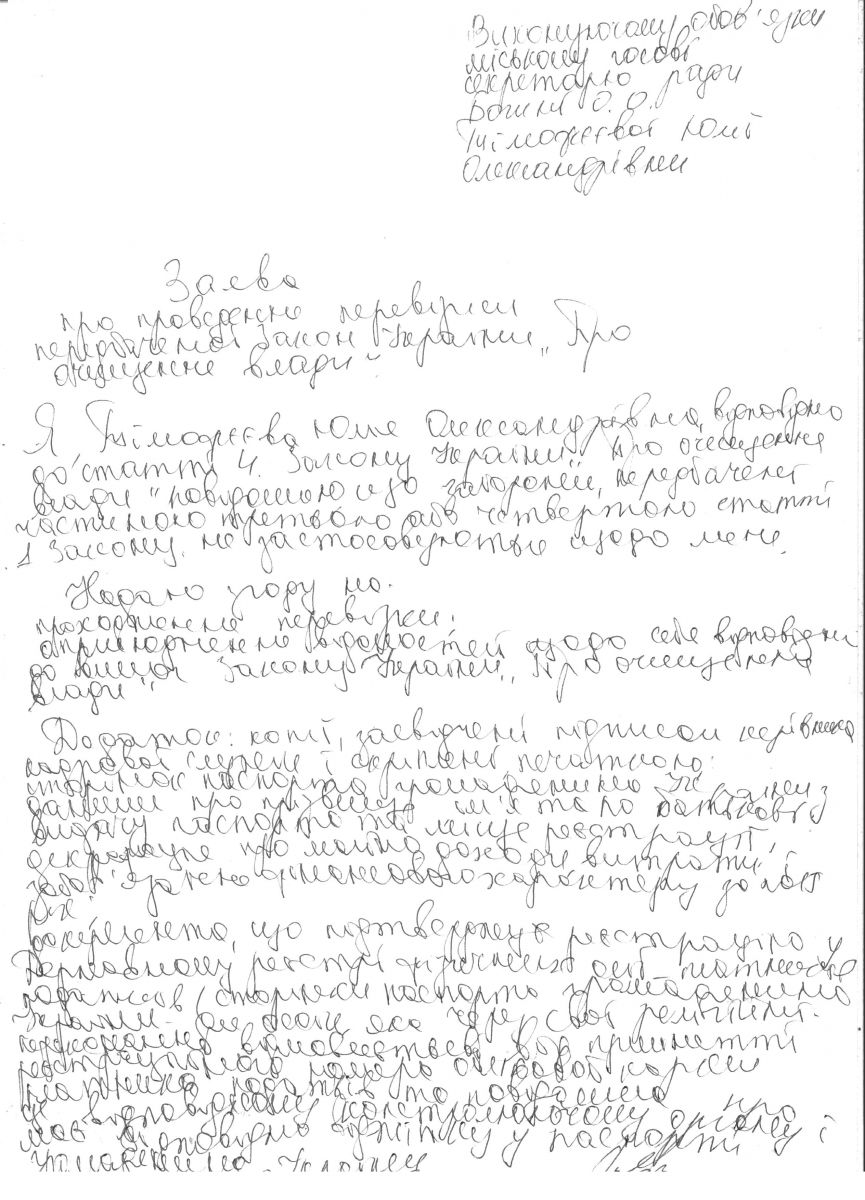 Виконуючому обов'язки
міському голові
секретарю ради
О.О.
Тімофєєвої Юлії
Олександрівни
Заява
про проведення перевірки
передбаченої Закон України „Про
очищення влади".
Я Тімофєєва Юлія Олександрівна, відповідно
до статті 4. Закону України „Про очищення
влади" повідомляю що заборони, передбачені
частиною третьою або четвертою статті
1 Закону, не застосовуються щодо мене.
Надаю згоду на:
проходження перевірки.
оприлюднення відомостей щодо себе відповідно
до вимог Закону України „Про очищення
влади"
Додаток: копії, засвідчені підписом керівника
кадрової служби і скріплені печаткою:
сторінок паспорта громадянина України з
даними про прізвище ім'я та по батькові
видачу паспорта та місце реєстрації,
декларація про майно доходи витрати і
зобов'язання фінансового характеру за
рік
документа, що підтверджує реєстрацію у
Державному реєстрі фізичних осіб платників
податків (сторінки паспорта громадянина
України - для особи яка через свої релігійні
переконання відмовляється від прийняття
реєстраційного номера облікової картки
платника податків та повідомила про
це відповідному контролюючому органу і
має відповідну відмітку у паспорті
громадянина України